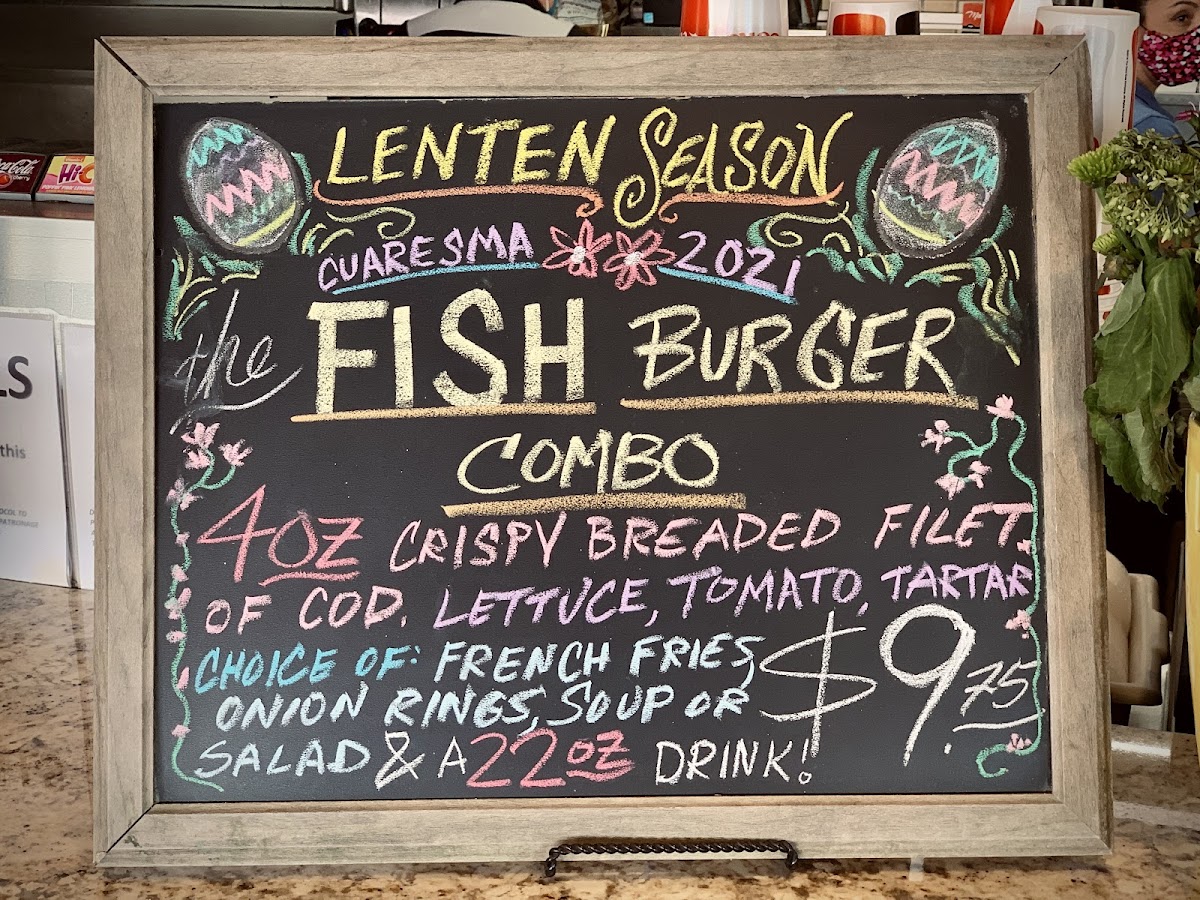 LENTEN SEASON
CUARESMA 2021
the FISH BURGER
COMBO
4oz CRISPY BREADED FILET
OF COD. LETTUCE, TOMATO, TARTAR
CHOICE OF: FRENCH FRIES,
ONION RINGS, SOUP OR
SALAD & A 22oz DRINK!
$9.75
Coca-Cola
Hi-C
LS
this
OCOL TO
PATRONAGE